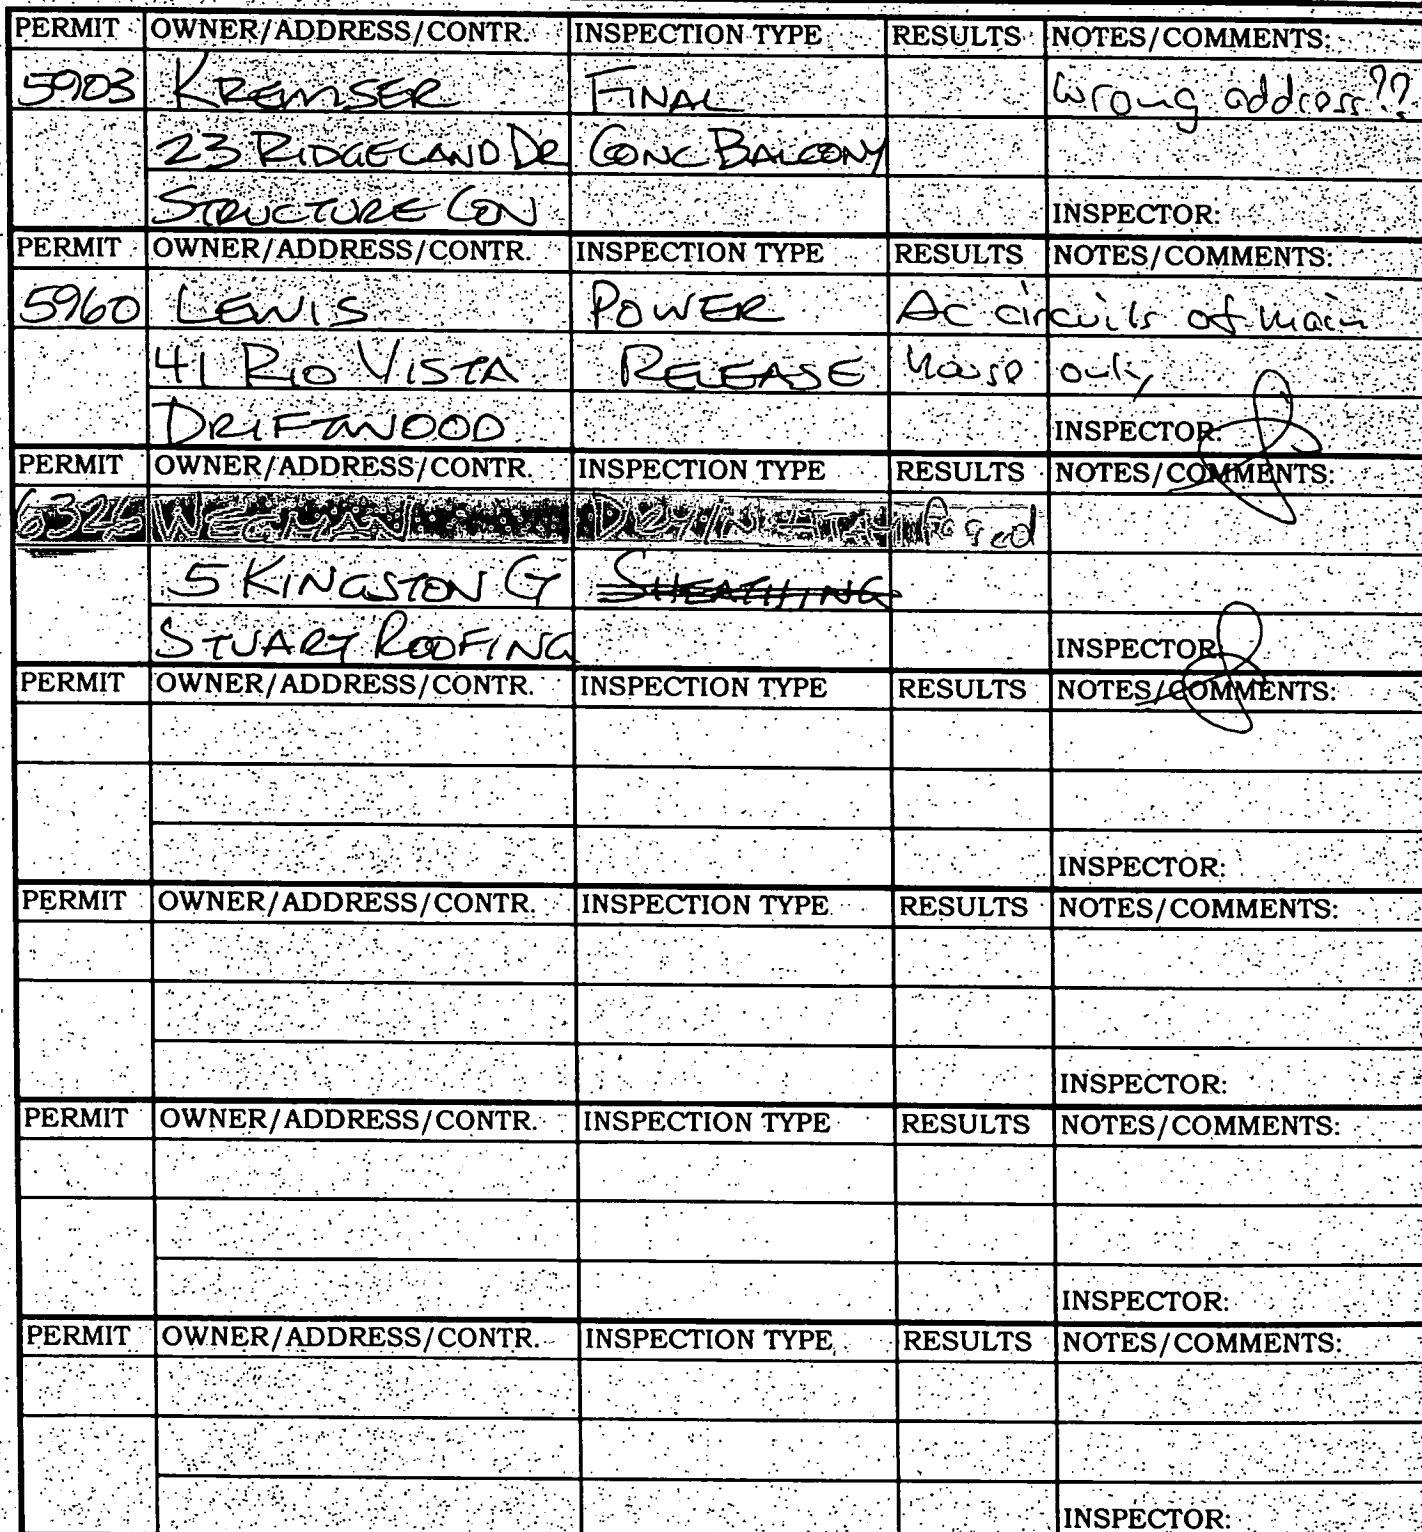 PERMIT OWNER/ADDRESS/CONTR. INSPECTION TYPE RESULTS NOTES/COMMENTS:
5903 KREMSER FINAL Wrong address??
23 RIDGELAND DR CONC BALCONY
STRUCTURE CON INSPECTOR:
PERMIT OWNER/ADDRESS/CONTR. INSPECTION TYPE RESULTS NOTES/COMMENTS:
5960 LEWIS POWER AC circuits of main
41 RIO VISTA RELEASE house only
DRIFTWOOD INSPECTOR:
PERMIT OWNER/ADDRESS/CONTR. INSPECTION TYPE RESULTS NOTES/COMMENTS:
6325 WEGMAN
5 KINGSTON CT SHEATHING
STUART ROOFING INSPECTOR:
PERMIT OWNER/ADDRESS/CONTR. INSPECTION TYPE RESULTS NOTES/COMMENTS:
INSPECTOR:
PERMIT OWNER/ADDRESS/CONTR. INSPECTION TYPE RESULTS NOTES/COMMENTS:
INSPECTOR:
PERMIT OWNER/ADDRESS/CONTR. INSPECTION TYPE RESULTS NOTES/COMMENTS:
INSPECTOR:
PERMIT OWNER/ADDRESS/CONTR. INSPECTION TYPE RESULTS NOTES/COMMENTS:
INSPECTOR: